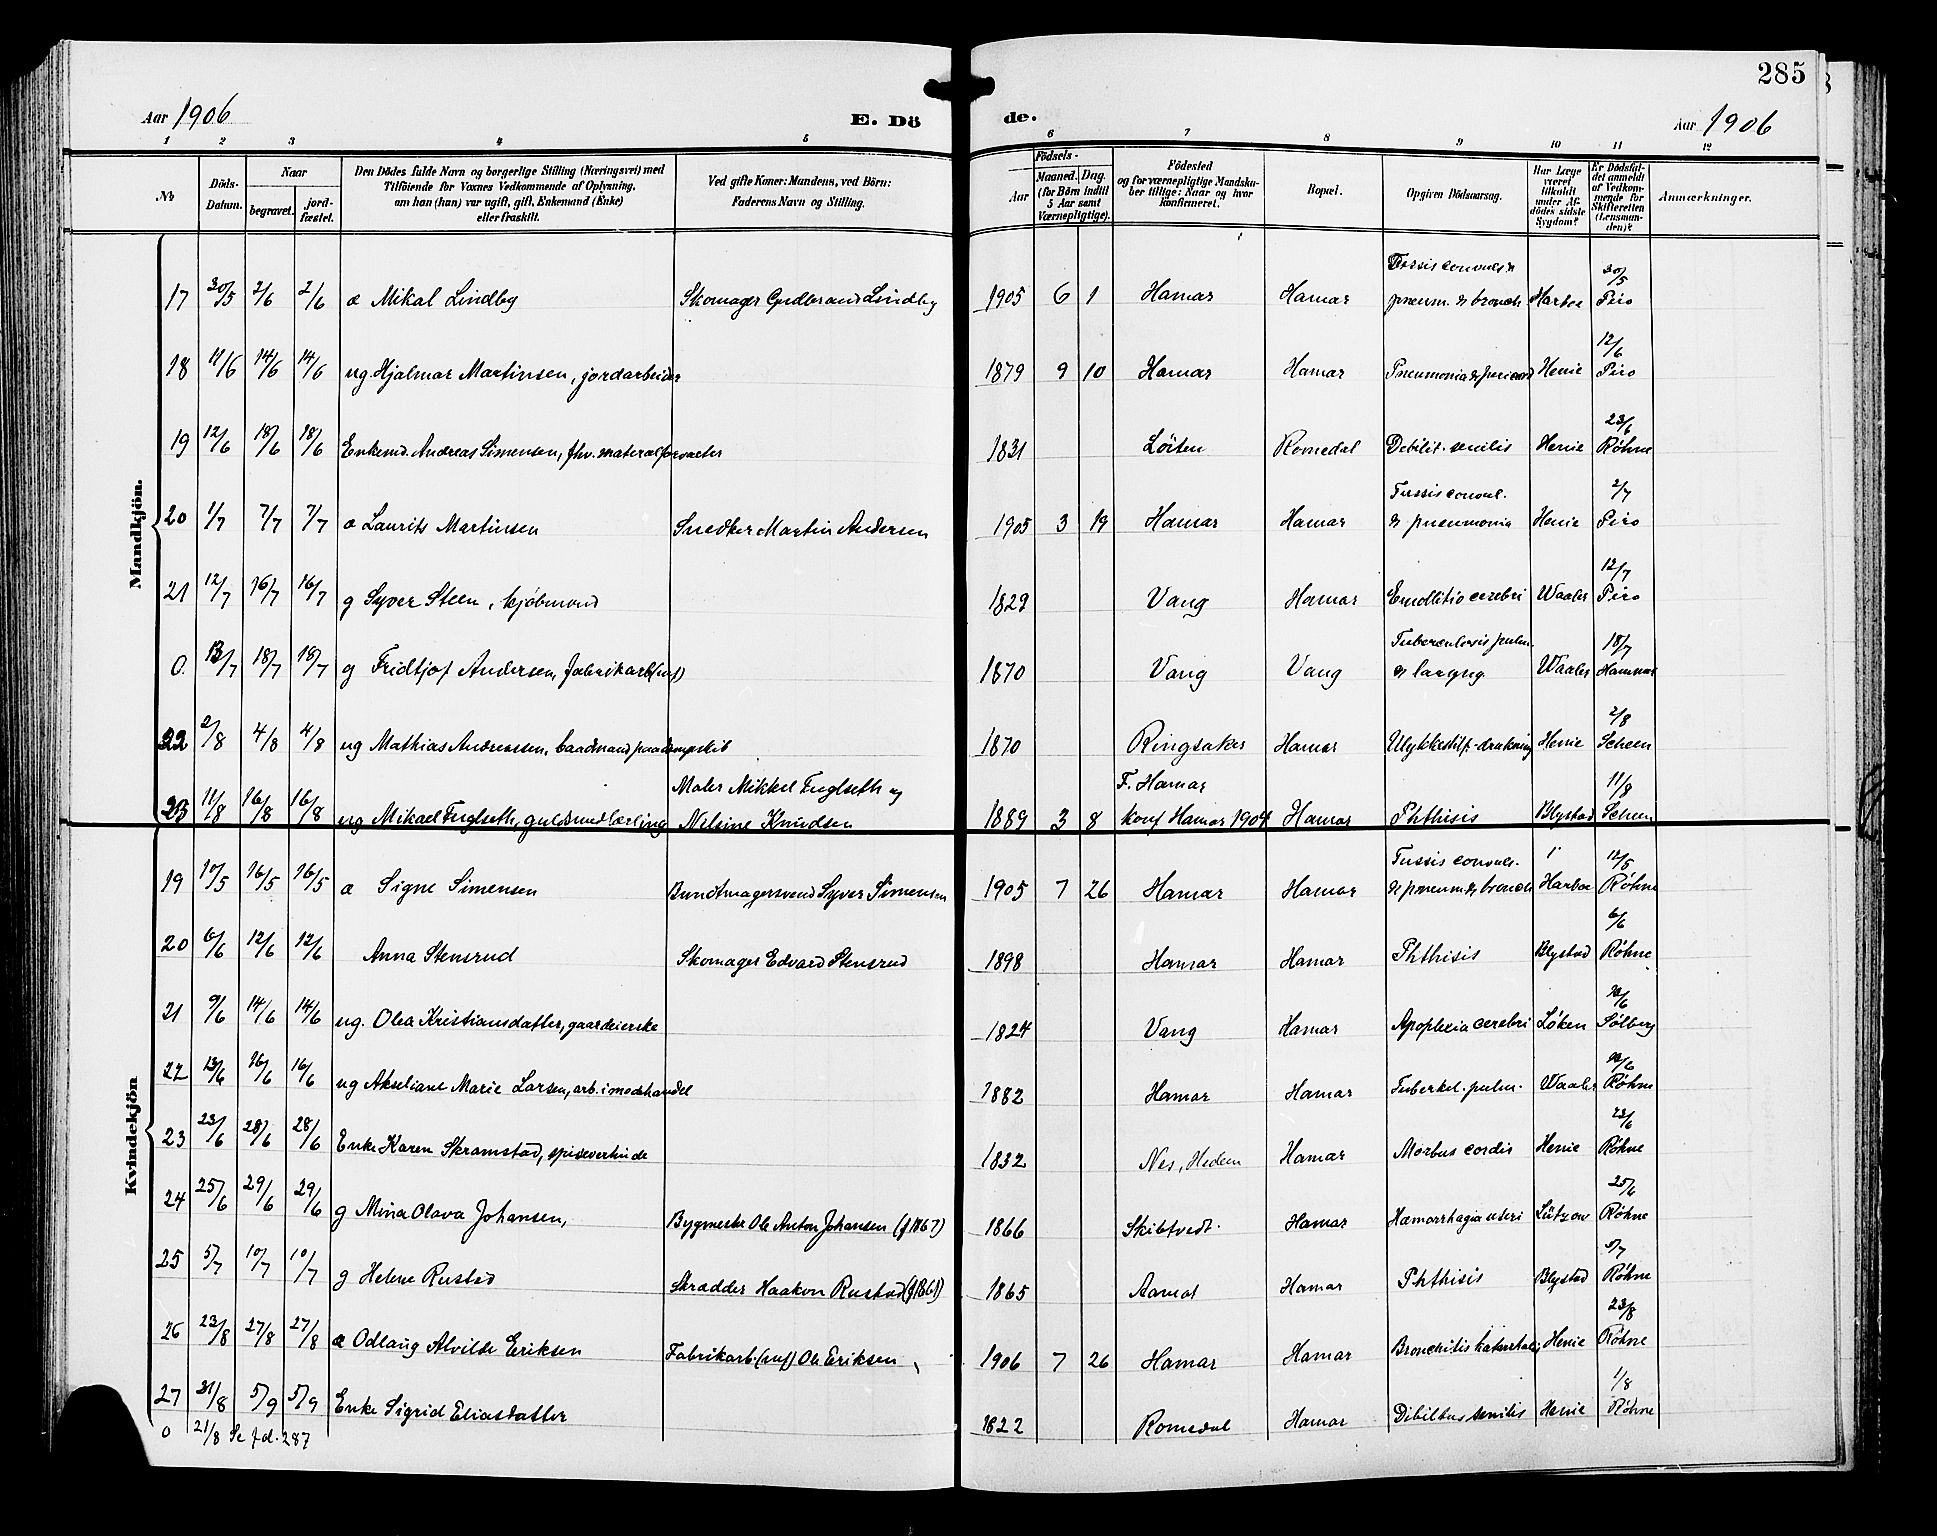 285
Aar 1906 E. Dö de. Aar 1906
1 2 3 4 5 6 7 8 9 10 11 12
No Döds-Datum. Naar begravet. jordfæstet. Den Dödes fulde Navn og borgerlige Stilling (Næringsvei) med Tilföiende for Voxnes Vedkommende af Oplysning, om han (hun) var ugift, gift, Enkemand (Enke) eller fraskilt. Ved gifte Koner: Mandens, ved Börn: Faderens Navn og Stilling. Födsels- Aar Maaned. Dag. (for Börn indtil 5 Aar samt Værnepligtige). Födested og for værnepligtige Mandskaber tillige: Naar og hvor konfirmeret. Bopæl. Opgiven Dödsaarsag. Har Læge været tilkaldt under Afdödes sidste Sygdom? Er Dödsfaldet anmeldt af Vedkommende for Skifteretten (Lensmanden)? Anmærkninger.
Mandkjön.
17 30/5 2/6 2/6 æ Mikal Lindby Skomager Gudbrand Lindby 1905 6 1 Hamar Hamar Tussis convuls & pneum. & bronch Harboe 30/5 Piro
18 11/6 14/6 14/6 ug. Hjalmar Martinsen, jordarbeider 1879 9 10 Hamar Hamar Pneumonia & pericard Henie 12/6 Piro
19 12/6 18/6 18/6 Enkemd. Andreas Simensen, fhv. materialforvalter 1831 Löiten Romedal Debilit. senilis Henie 23/6 Röhne
20 1/7 7/7 7/7 æ Laurits Martinsen Snedker Martin Andersen 1905 3 19 Hamar Hamar Tussis convul. & pneumonia Henie 2/7 Piro
21 12/7 16/7 16/7 g Syver Steen, kjöbmand 1829 Vang Hamar Emollitio cerebri Waaler 12/7 Piro
0. 13/7 18/7 18/7 g Fridtjof Andersen, fabrikarb (inf) 1870 Vang Vang Tuberculosis pulm. & laryng Waaler 18/7 Hammer
22 2/8 4/8 4/8 ug Mathias Andreassen, baadmand paa dampskib 1870 Ringsaker Hamar Ulykkestilf-drukning Henie 2/8 Scheen
23 11/8 16/8 16/8 ug Mikael Fuglseth, guldsmedlærling Maler Mikkel Fuglseth og Nilsine Knudsen 1889 3 8 F. Hamar konf Hamar 1904 Hamar Phthisis Blystad 11/8 Scheen
Kvindekjön
19 10/5 16/5 16/5 æ Signe Simensen Bundtmagersvend Syver Simensen 1905 7 26 Hamar Hamar Tussis convuls. & pneum & bronch Harboe 12/5 Röhne
20 6/6 12/6 12/6 Anna Stensrud Skomager Edvard Stensrud 1898 Hamar Hamar Phthisis Blystad 6/6 Röhne
21 9/6 14/6 14/6 ug. Olea Kristiansdatter, gaardeierske 1824 Vang Hamar Apoplexia cerebri Löken Sölberg
22 13/6 16/6 16/6 ug Akseliane Marie Larsen, arb. i modehandel 1882 Hamar Hamar Tuberkel. pulm. Waaler Röhne
23 23/6 28/6 28/6 Enke Karen Skramstad, spisevertinde 1832 Nes, Hedem Hamar Morbus cordis Henie 23/6 Röhne
24 25/6 29/6 29/6 g Mina Olava Johansen, Bygmester Ole Anton Johansen (f 1867) 1866 Skibtvedt. Hamar Hæmorrhagia uteri Lützow 25/6 Röhne
25 5/7 10/7 10/7 g Helene Rustad Skrædder Haakon Rustad (f 1861) 1865 Aamot Hamar Phthisis Blystad 5/7 Röhne
26 23/8 27/8 27/8 æ Odlaug Alvilde Eriksen Fabrikarb. (inf) Ole Eriksen 1906 7 26 Hamar Hamar Bronchitis katarrhalis Henie 23/8 Röhne
27 31/8 5/9 5/9 Enke Sigrid Eliasdatter 1822 Romedal Hamar Dibilitas senilis Henie 1/8 Röhne
0 21/8 Se fol. 287